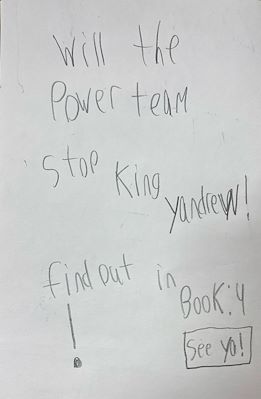 Will the
Power team
Stop King
yandrew!
find out in
Book:4
!
See ya!